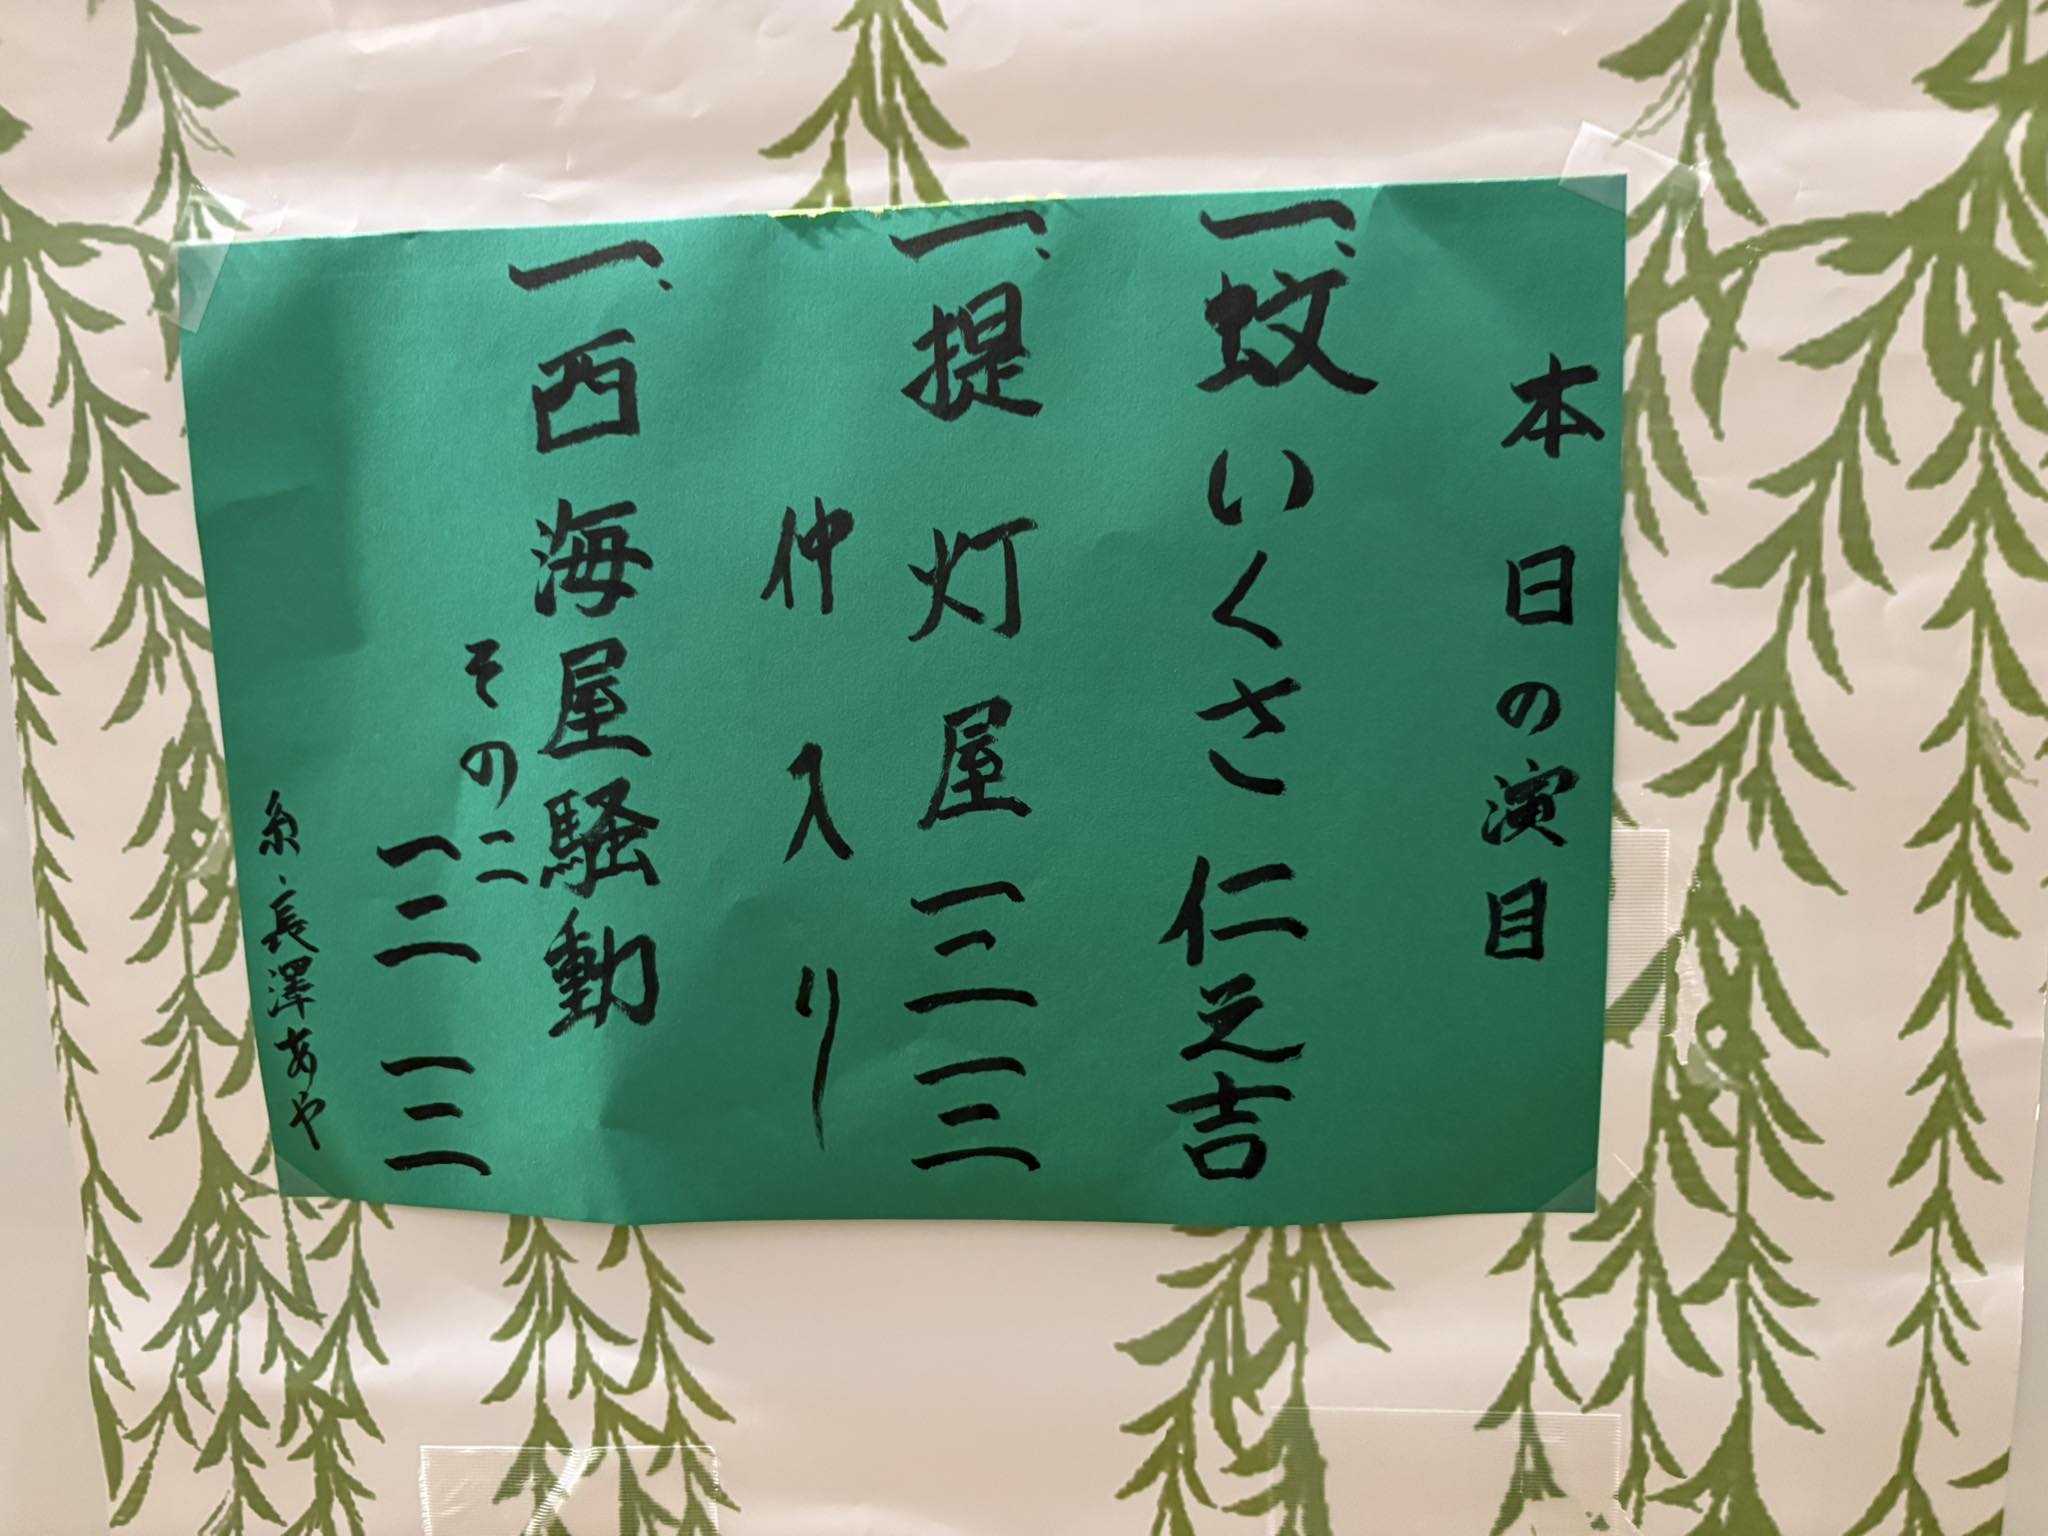 本日の演目
一、蚊いくさ 仁之吉
一、提灯屋 三三
仲入り
一、西海屋騒動
その二
三三
糸、長澤あや